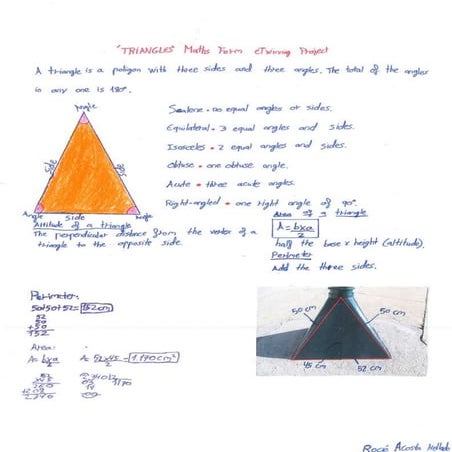 "TRIANGLES" Maths Form eTwinnig Project
A triangle is a poligon with three sides and three angles. The total of the angles
in any one is 180°.
Angle
Side
Side
Angle
Side
Angle
Scalene • no equal angles or sides.
Equilateral • 3 equal angles and sides.
Isosceles • 2 equal angles and sides.
Obtuse • one obtuse angle.
Acute • three acute angles.
Right-angled • one right angle of 90°.
Altitude of a triangle
The perpendicular distance from the vertex of a
triangle to the opposite side.
Area of a triangle
A = bxa/2
half the base x height (altitude).
Perimeter
Add the three sides.
Perimeter:
50+50+52= 152 cm
52
50
+50
152
Area:
A= bxa/2 A= 52x45/2 = 1.170 cm²
50 cm
50 cm
45 cm
52 cm
Acosta